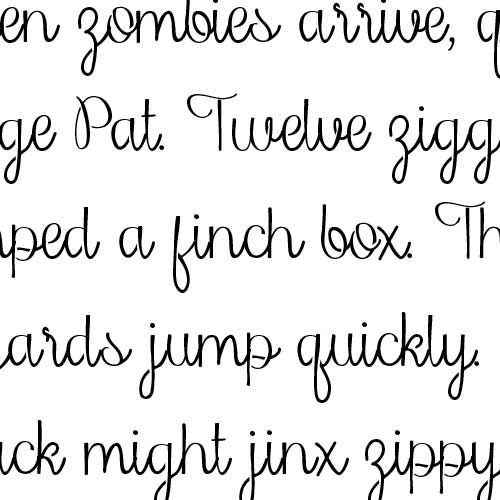 en zombies arrive, q
ge Pat. Twelve zigg
ped a finch box. Th
ards jump quickly.
ck might jinx zippy